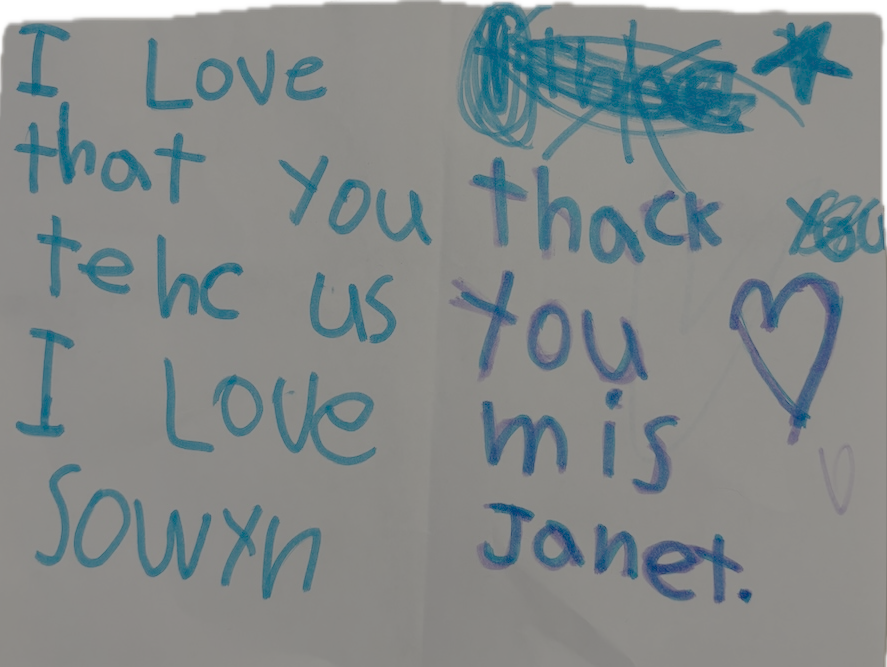 I Love
that you
tehc us
I Love
Sowyn
thack you
you
mis
Janet.